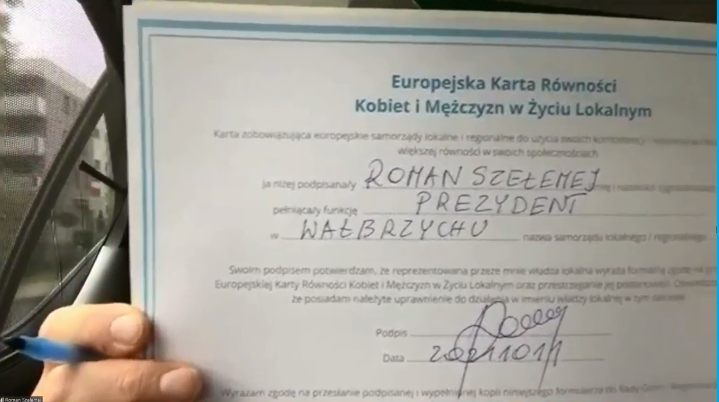 Europejska Karta Równości
Kobiet i Mężczyzn w Życiu Lokalnym
Karta zobowiązująca europejskie samorządy lokalne i regionalne do użycia swoich
większej równości w swoich społecznościach
ja niżej podpisana/y ROMAN SZEŁEMEJ
pełniąca/y funkcję PREZYDENT
w WAŁBRZYCHU nazwa samorządu lokalnego / regionalnego
Swoim podpisem potwierdzam, że reprezentowana przeze mnie władza lokalna wyraża formalną zgodę na
Europejskiej Karty Równości Kobiet i Mężczyzn w Życiu Lokalnym oraz przestrzeganie jej postanowień.
że posiadam należyte uprawnienie do działania w imieniu władzy lokalnej w tym zakresie
Podpis
Data
Wyrażam zgodę na przesłanie podpisanej i wypełnionej kopii niniejszego formularza do Rady Gmin i
Roman Szełemej